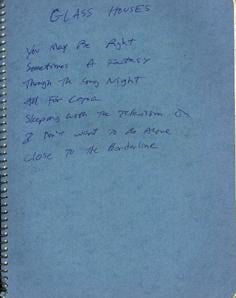 GLASS HOUSES
You May Be Right
Sometimes A Fantasy
Through The Long Night
All For Leyna
Sleeping With The Television On
I Don't Want To Be Alone
Close To The Borderline